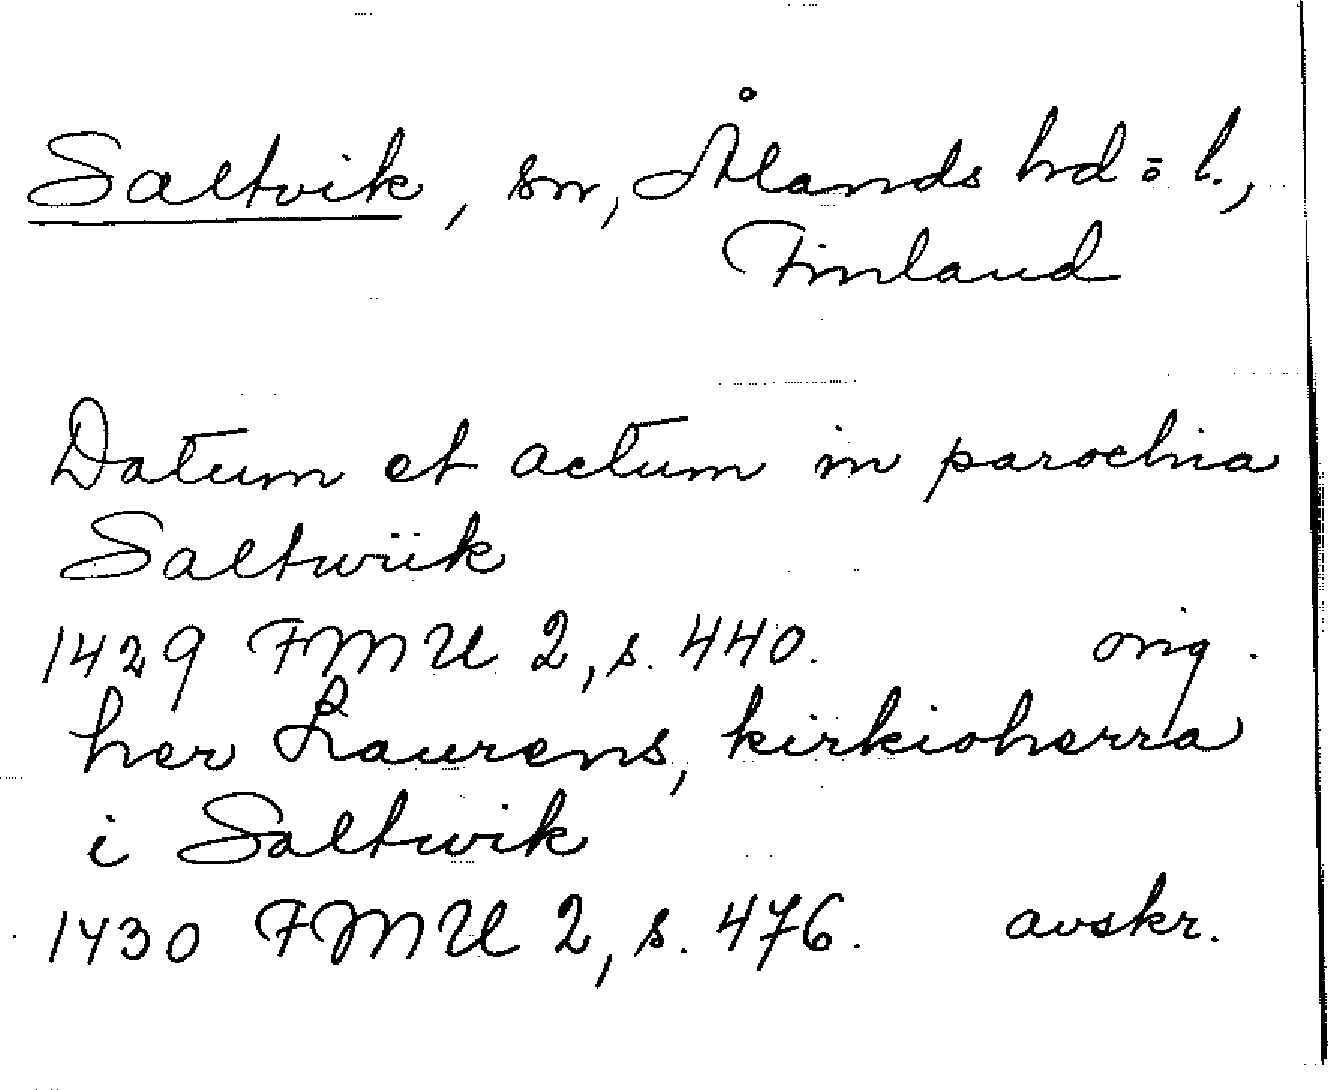 Saltvik, sn, Ålands hd o. l.,
Finland
Datum et actum in parochia
Saltwiik
1429 FMU 2, s. 440. orig.
her Laurens, kirkioherra
i Saltwik
1430 FMU 2, s. 476. avskr.